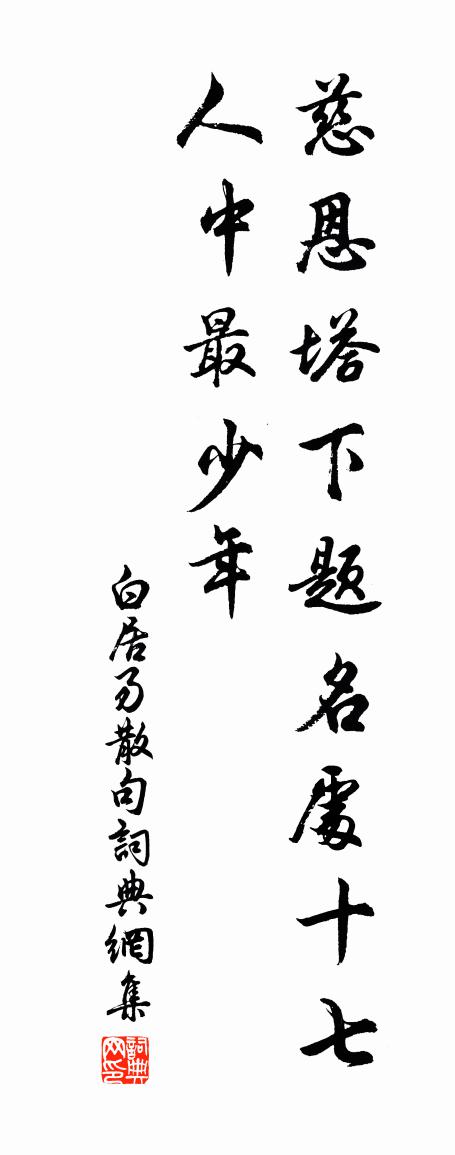 慈恩塔下題名處十七
人中最少年
白居易散句詞典網集
詞典
网印